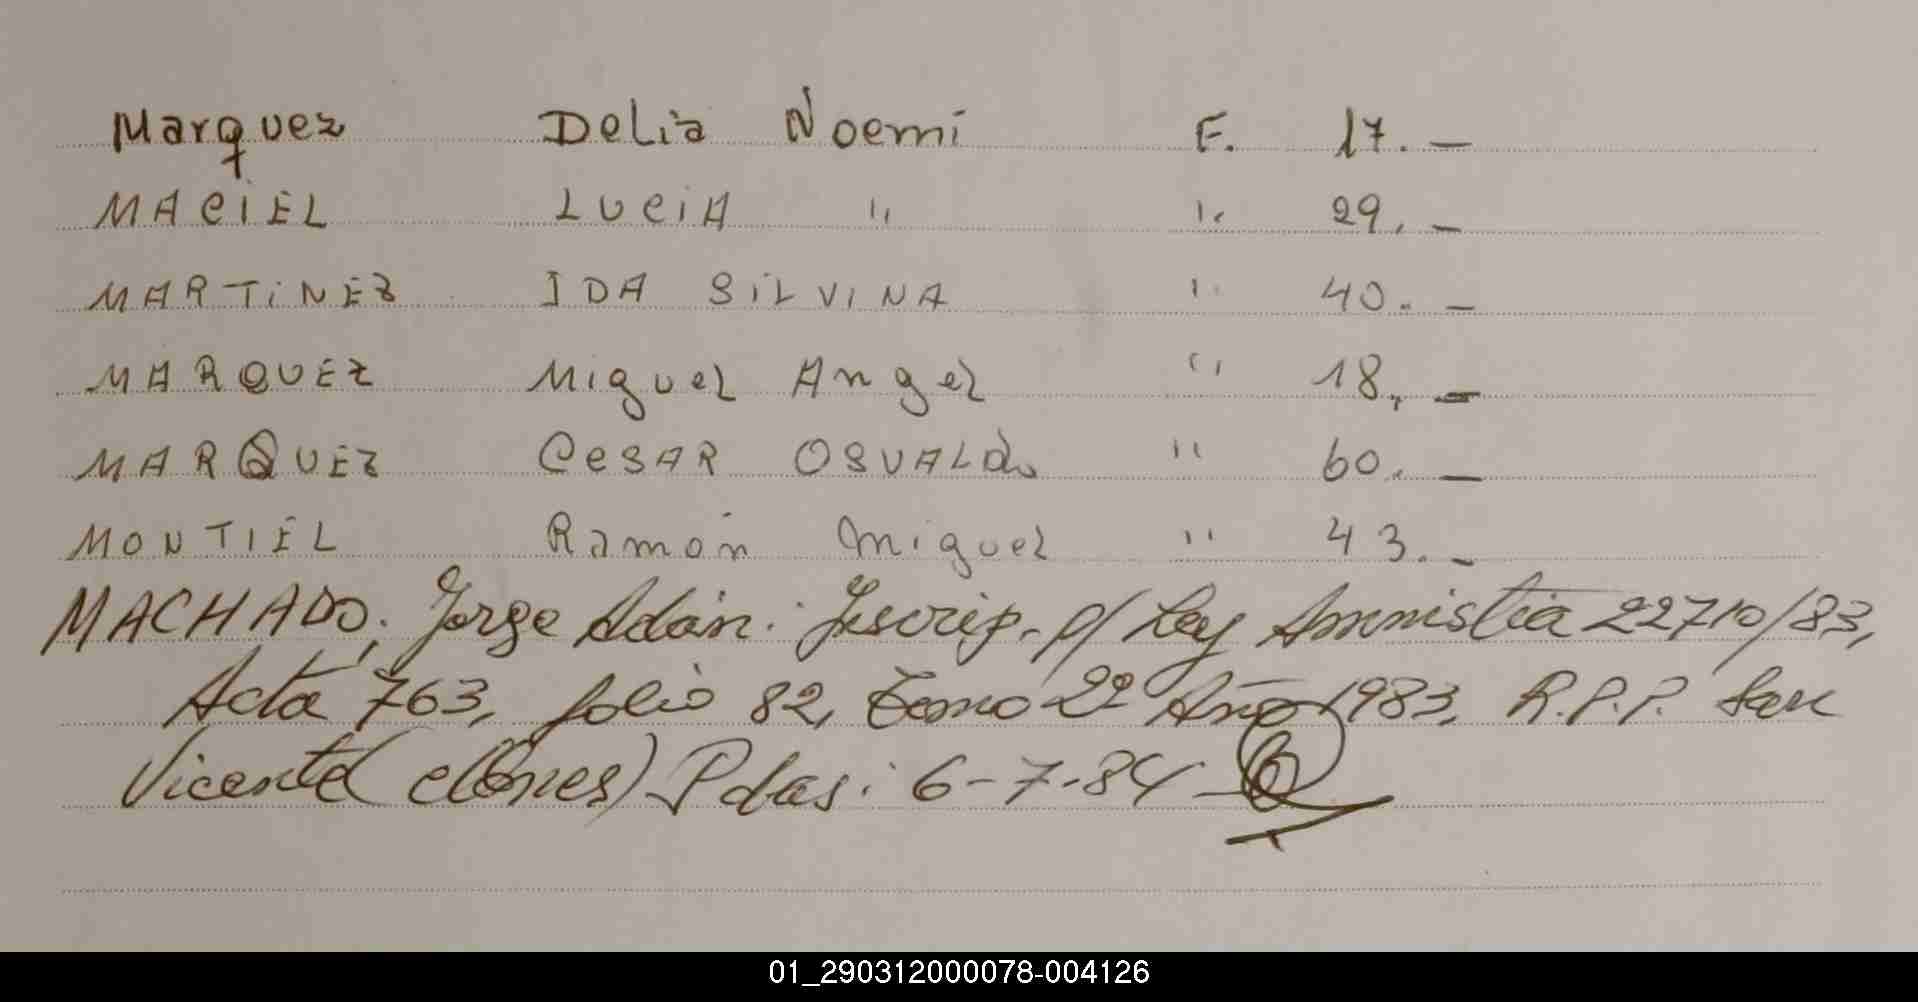 Marquez Delia Noemi F. 17.—
MACIEL LUCIA " " 29.—
MARTINEZ IDA SILVINA " 40.—
MARQUEZ Miguel Angel " 18.—
MARQUEZ CESAR OSVALDo " 60.—
MONTIEL Ramón Miguel " 43.—
MACHADO, Jorge Adán: Inscrip. p/ Ley Amnistia 22710/83,
Acta 763, folio 82, tomo 2º Año 1983, R.P.P. San
Vicente Pdas: 6-7-84
01_290312000078-004126